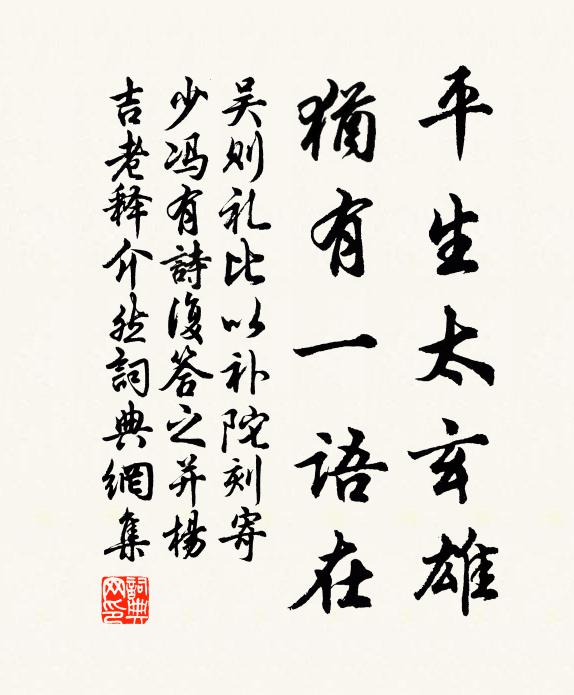 平生太玄雄
猶有一語在
吴则礼比以补陀刻寄
少冯有詩復答之并楊
吉老释介然詞典網集
詞典
网印